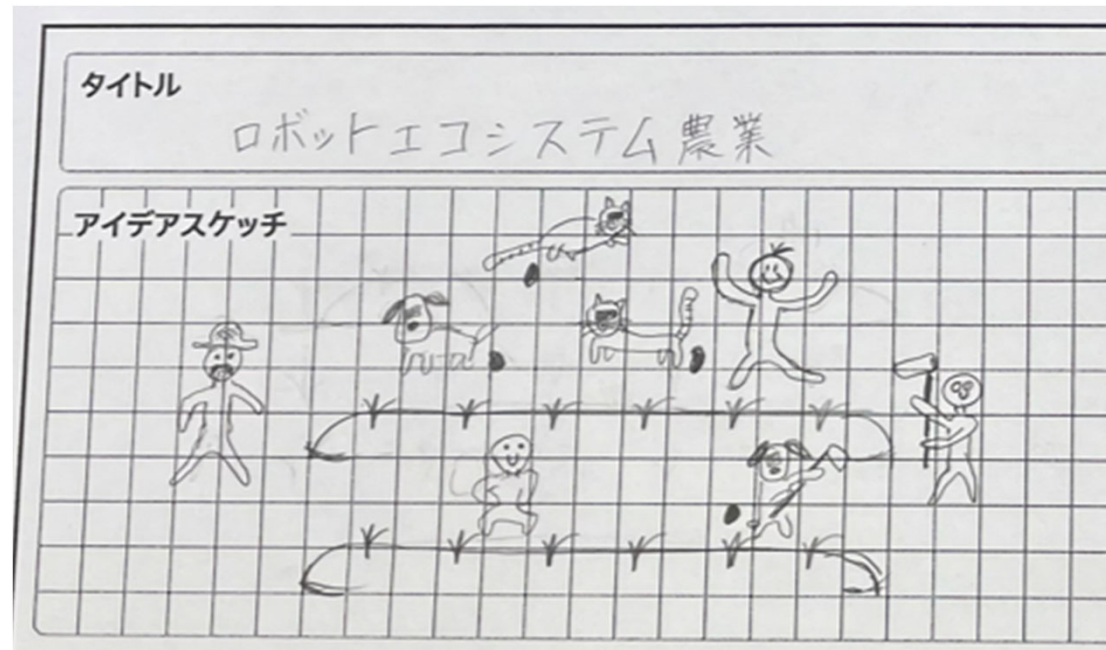 タイトル
ロボットエコシステム農業
アイデアスケッチ